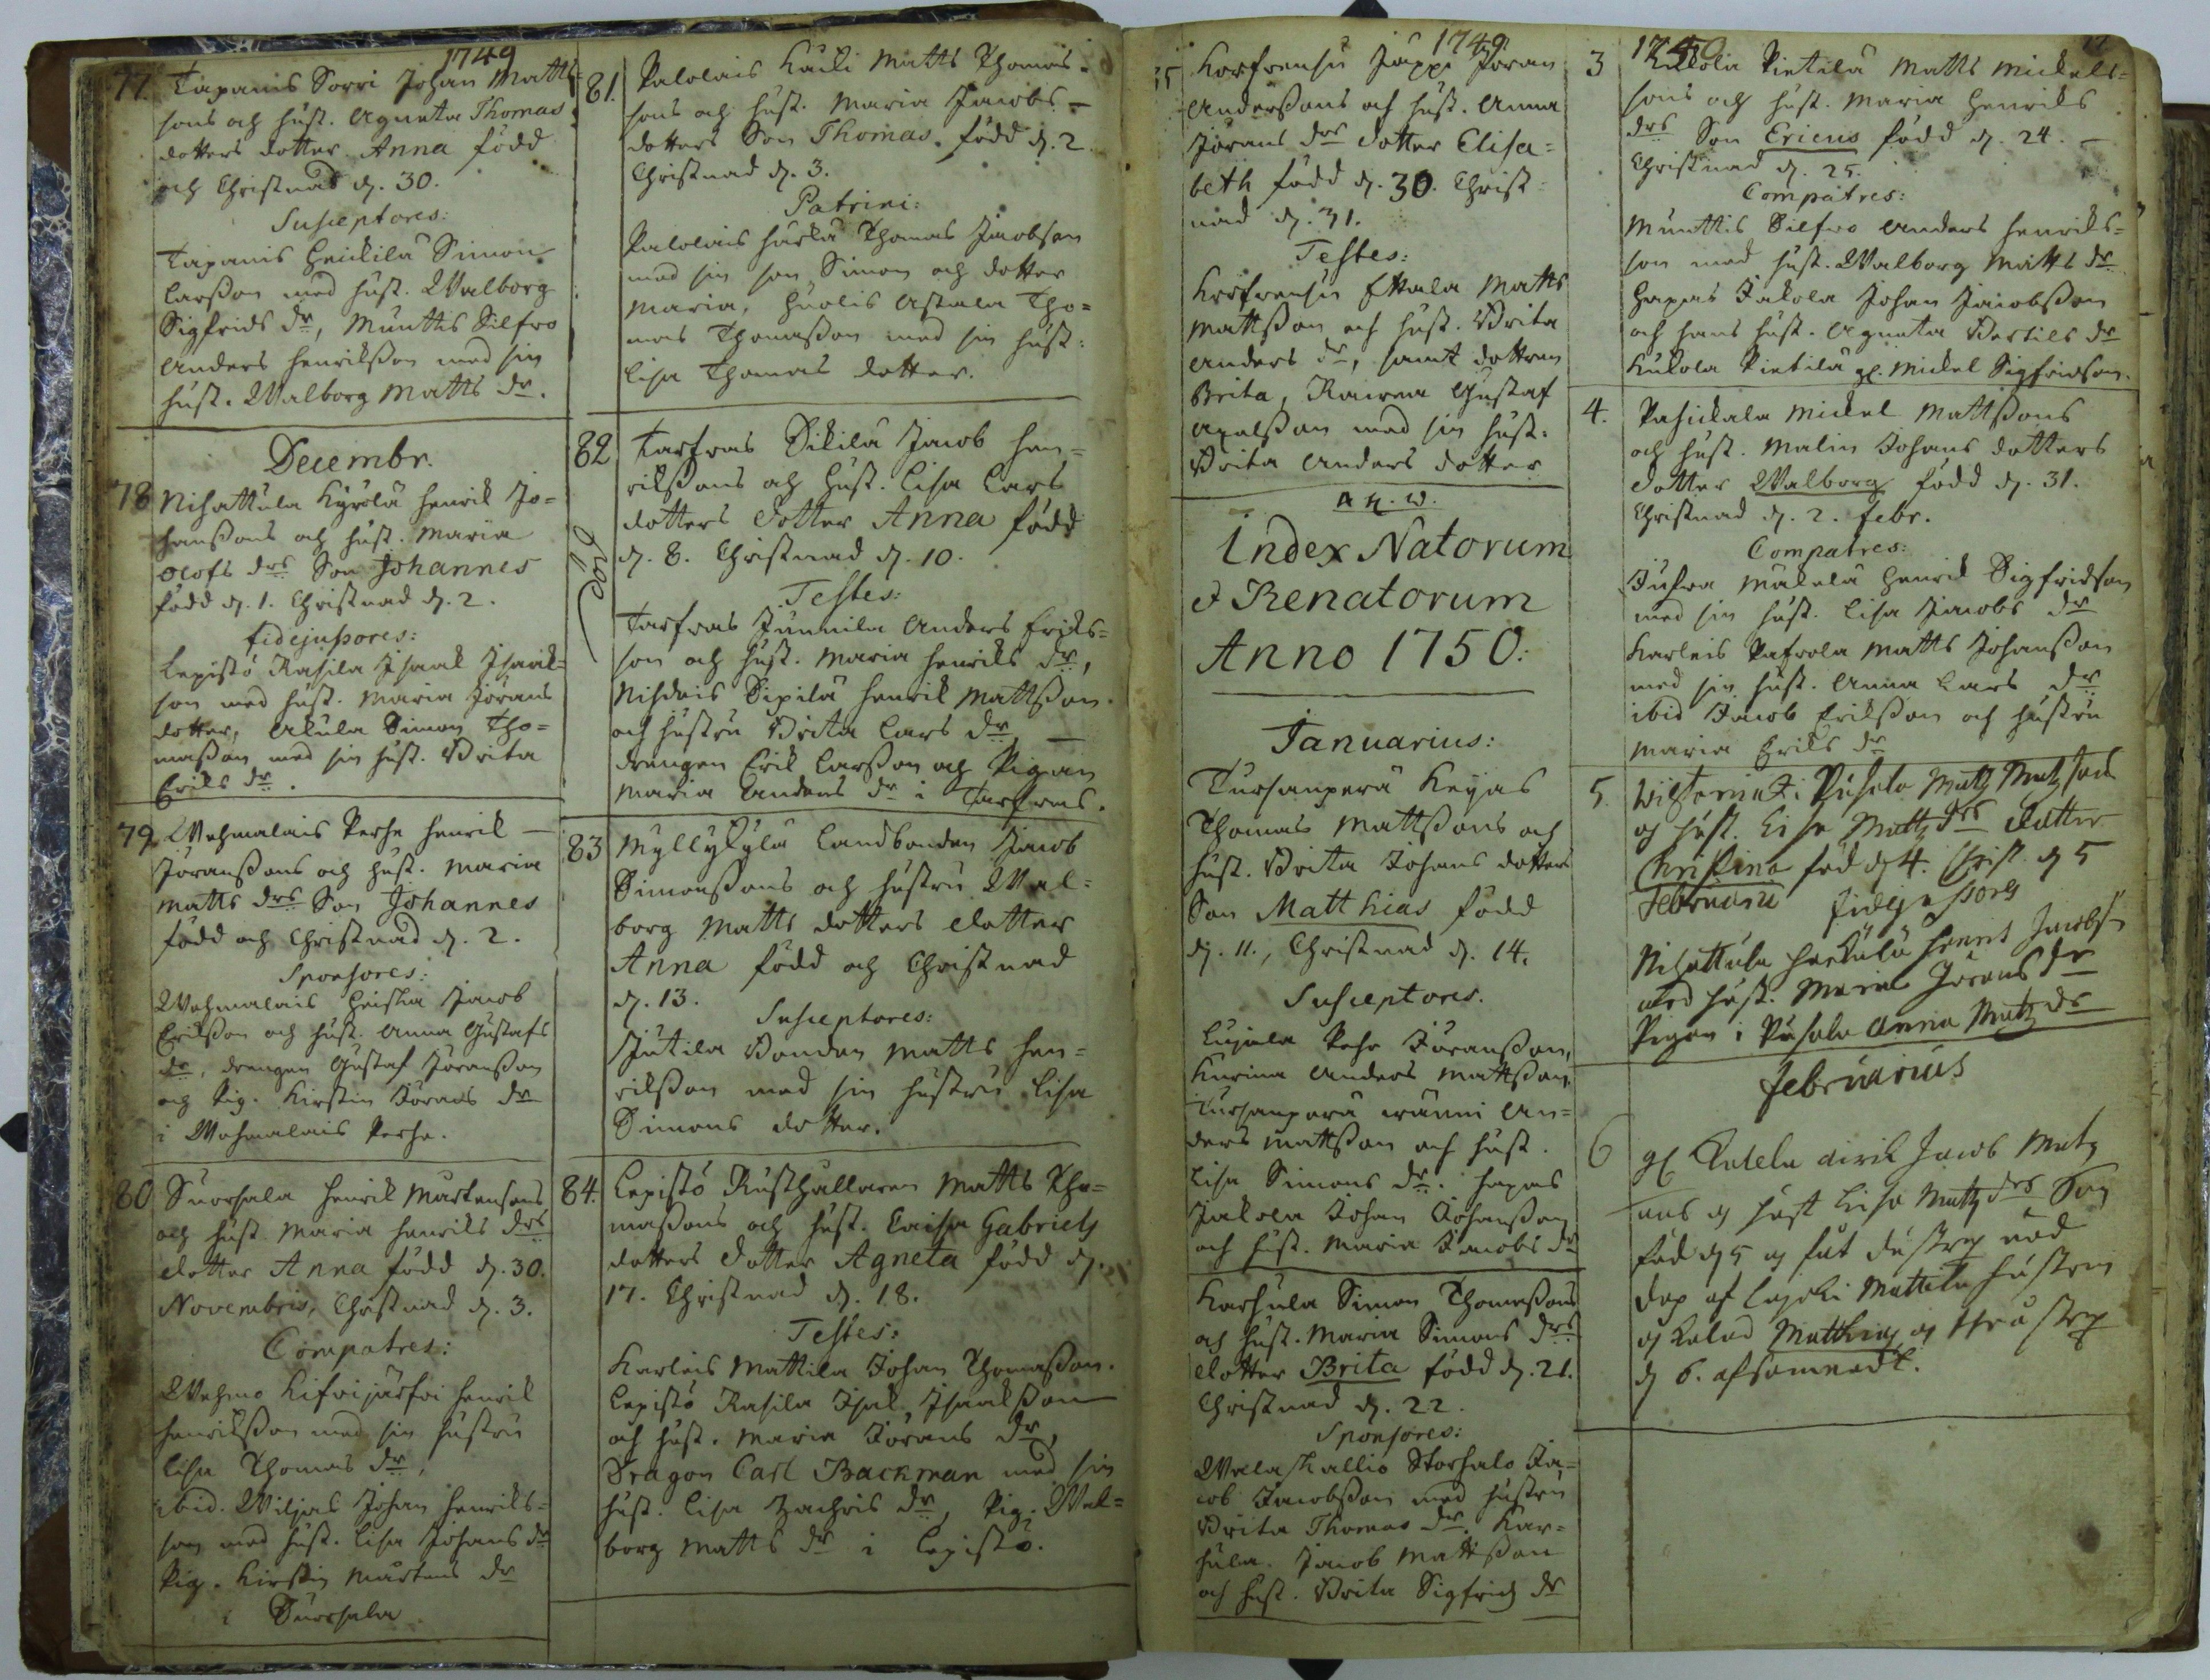 1749
77. Tapanis Sorri Johan Matts=
sons och hust. Agneta Thomas
dotters dotter Anna född
och Christnad d. 30.
Susceptores:
Tapanis Heickilä Simon
Larsson med hust. Walborg
Sigfrids dr, Munttis Silfwo
Anders Henriksson med sin
hust. Walborg Matts dr.
Decembr.
78 Nihattula Kyrölä Henrik Jo=
hanssons och hust. Maria
Olofs drs Son Johannes
född d. 1. Christnad d. 2.
fidejussores:
Lepistö Rasila Isaak Isaak=
son med hust. Maria Jörans
dotter, Akula Simon Tho=
masson med sin hust. Brita
Eriks dr.
79 Wehmalais Perhe Henrik
Jöranssons och hust. Maria
Matts drs Son Johannes
född och Christnad d. 2.
Sponsores:
Wehmalais Heickla Jacob
Eriksson och hust. Anna Gustafs
dr, drengen Gustaf Jöransson
och Pig. Kirstin Jörans dr
i Wehmalais Perhe.
80 Suorsala Henrik Mårtensons
och hust. Maria Henriks drs
dotter Anna född d. 30.
Novembris, Christnad d. 3.
Compatres:
Wehmo Kifwijärfwi Henrik
Henriksson med sin hustru
Lisa Thomas dr,
ibid. Wiljas Johan Henriks=
son med hust. Lisa Johans dr
Pig. Kirstin Mårtens dr
i Suorsala
81. Palolais Kacki Matts Thomas=
sons och hust. Maria Jacobs
dotters Son Thomas. född d. 2
Christnad d. 3.
Patrini:
Palolais Harka Thomas Jacobson
med sin son Simon och dotter
Maria, Huolis Astala Tho=
mas Thomasson med sin hust:
Lisa Thomas dotter.
82 Tarfwas Sikilä Jacob Hen=
rikssons och Hust. Lisa Lars
dotters dotter Anna född
d. 8. Christnad d. 10.
Testes:
Tarfwas Junnila Anders Eriks=
son och hust. Maria Henriks dr,
Nihdois Sipilä Henrik Mattsson
och hustru Brita Lars dr,
drengen Erik Larsson och Pigan
Maria Anders dr i Tarfwas.
83 Myllykylä Landbonden Jacob
Simonssons och hustru Wal=
borg Matts dotters dotter
Anna född och Christnad
d. 13.
Susceptores:
Jutila Bonden Matts Hen=
riksson med sin hustru Lisa
Simons dotter.
84. Lepistö Rusthållaren Matts Tho=
massons och hust. Caisa Gabriels
dotters dotter Agneta född d.
17. Christnad d. 18.
Testes:
Karleis Mattila Johan Thomasson.
Lepistö Rasila Isak, Isaaksson
och hust. Maria Jörans dr,
Dragon Carl Backman med sin
hust. Lisa Zachris dr, Pig. Wal=
borg Matts dr i Lepistö.
1749
Korfwensu Jäppi Jöran
Anderssons och hust. Anna
Jörans drs dotter Elisa=
beth född d. 30. Christ=
nad d. 31.
Testes:
Korfwensu Ettala Matts
Mattsson och hust. Brita
Anders dr, samt dottren
Brita, Gustaf
Axelsson med sin hust.
Brita Anders dotter
Index Natorum
& Renatorum
Anno 1750:
Januarius:
Tursanperä Keijas
Thomas Mattssons och
hust. Brita Johans dotters
Son Matthias född
d. 11., Christnad d. 14.
Susceptores.
Lujala Pehr Jöransson,
Kurina Anders Mattsson,
Tursanperä An=
ders Mattsson och hust.
Lisa Simons dr. Hapas
Jakola Johan Johansson
och hust. Maria Jacobs dr
Karhula Simon Thomassons
och hust. Maria Simons drs
dotter Brita född d. 21.
Christnad d. 22.
Sponsores:
Wålaskallio Storsalo Ja=
cob Jacobsson med hustru
Brita Thomas dr. Kar=
hula. Jacob Mattsson
och hust. Brita Sigfrids dr
1750
3 Kukola Pietilä Matts Mickels=
sons och hust. Maria Henriks
drs Son Ericus född d. 24.
Christnad d. 25.
Compatres:
Munttis Silfwo Anders Henriks=
son med hust. Walborg Matts dr
Hapas Jakola Johan Jacobsson
och hans hust. Agneta Bertils dr
Kukola Pietilä gl. Mickel Sigfridson.
4. Pasickala Mickel Mattssons
och hust. Malin Johans dotters
dotter Walborg född d. 31.
Christnad d. 2. febr.
Compatres:
Juhwa Mäkelä Henrik Sigfridson
med sin hust. Lisa Jacobs dr
Karleis Pafwola Matts Johansson
med sin hust. Anna Lars dr
ibid Jacob Eriksson och hustru
Maria Eriks dr
5. i Pusala Matz Matzsons
och hust. Lisa Matz drs dotter
Christina föd d 4. Christ. d 5
Februarii fidejussores
Nihattula Henric Jacobs
med hust. Maria Jörans dr
Pigan i Pusala Anna Matz dr
februarius
6 gl Jacob Matz
sons och hust Lisa Matz drs Son
föd d 5 och fåt nöd
dop af hustrun
och kalad Matthias och
d 6. afsomnadt.